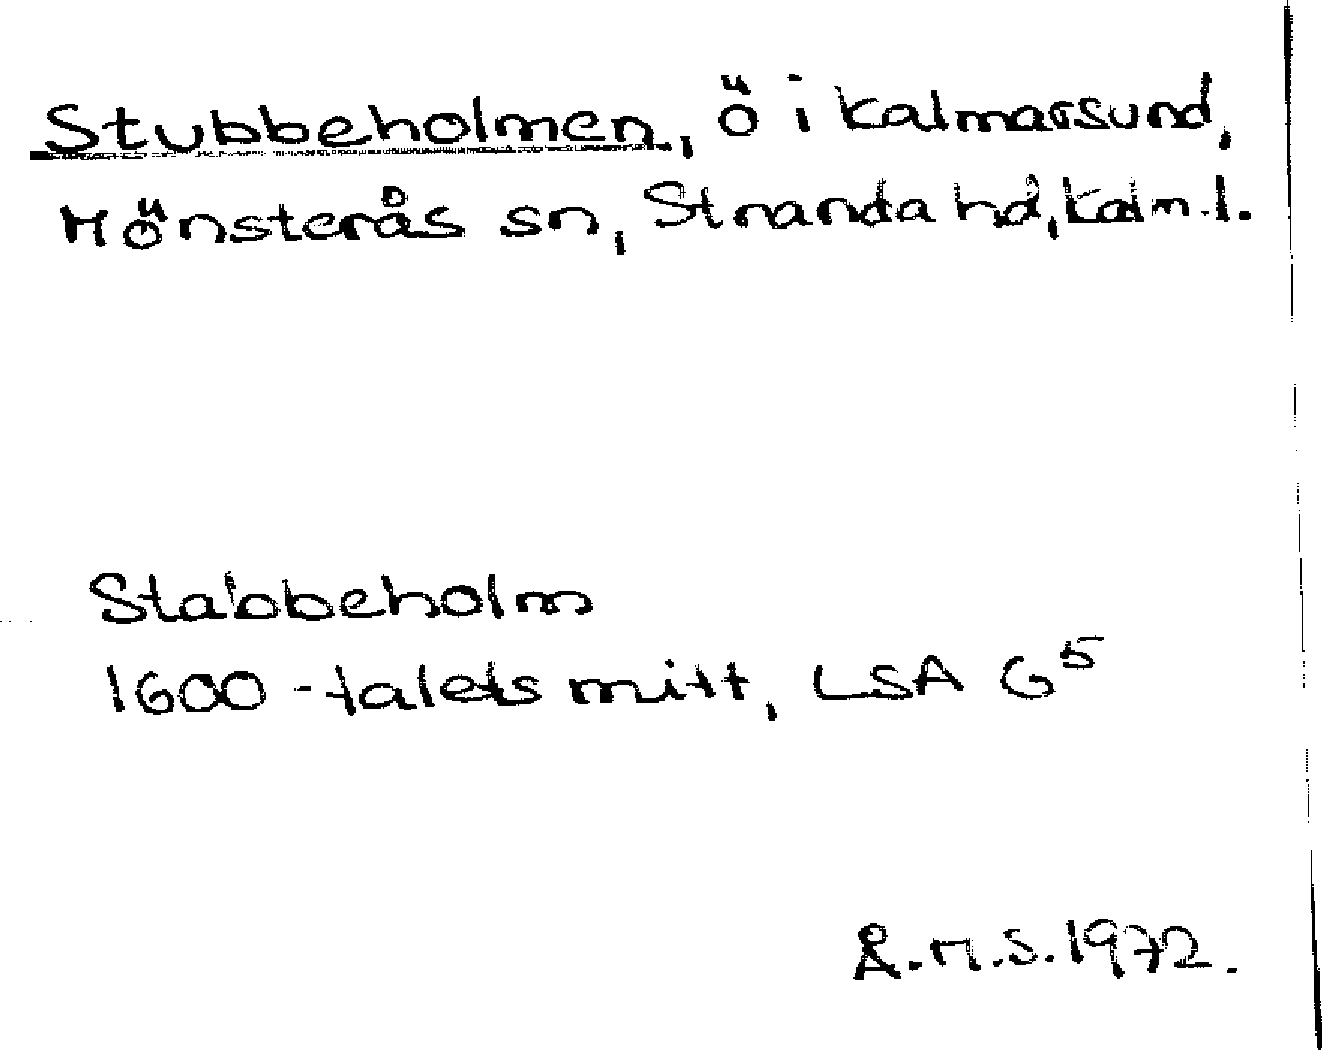 Stubbeholmen, ö i Kalmarsund,
Mönsterås sn, Stranda hd, Kalm. l.
Stabbeholm
1600-talets mitt, LSA G⁵
R.M.S. 1972.